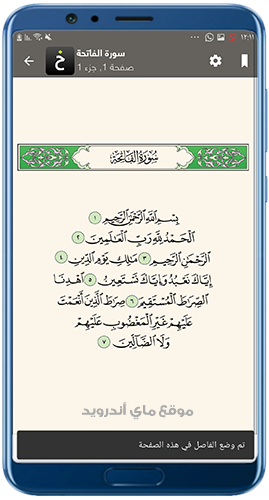 ١٢:١١
سورة الفاتحة
صفحة 1, جزء 1
خ
سُورَةُ الفَاتِحَةِ
بِسْمِ اللَّهِ الرَّحْمَٰنِ الرَّحِيمِ ١
الْحَمْدُ لِلَّهِ رَبِّ الْعَالَمِينَ ٢
الرَّحْمَٰنِ الرَّحِيمِ ٣ مَالِكِ يَوْمِ الدِّينِ ٤
إِيَّاكَ نَعْبُدُ وَإِيَّاكَ نَسْتَعِينُ ٥ اهْدِنَا
الصِّرَاطَ الْمُسْتَقِيمَ ٦ صِرَاطَ الَّذِينَ أَنْعَمْتَ
عَلَيْهِمْ غَيْرِ الْمَغْضُوبِ عَلَيْهِمْ
وَلَا الضَّالِّينَ ٧
موقع ماي أندرويد
تم وضع الفاصل في هذه الصفحة